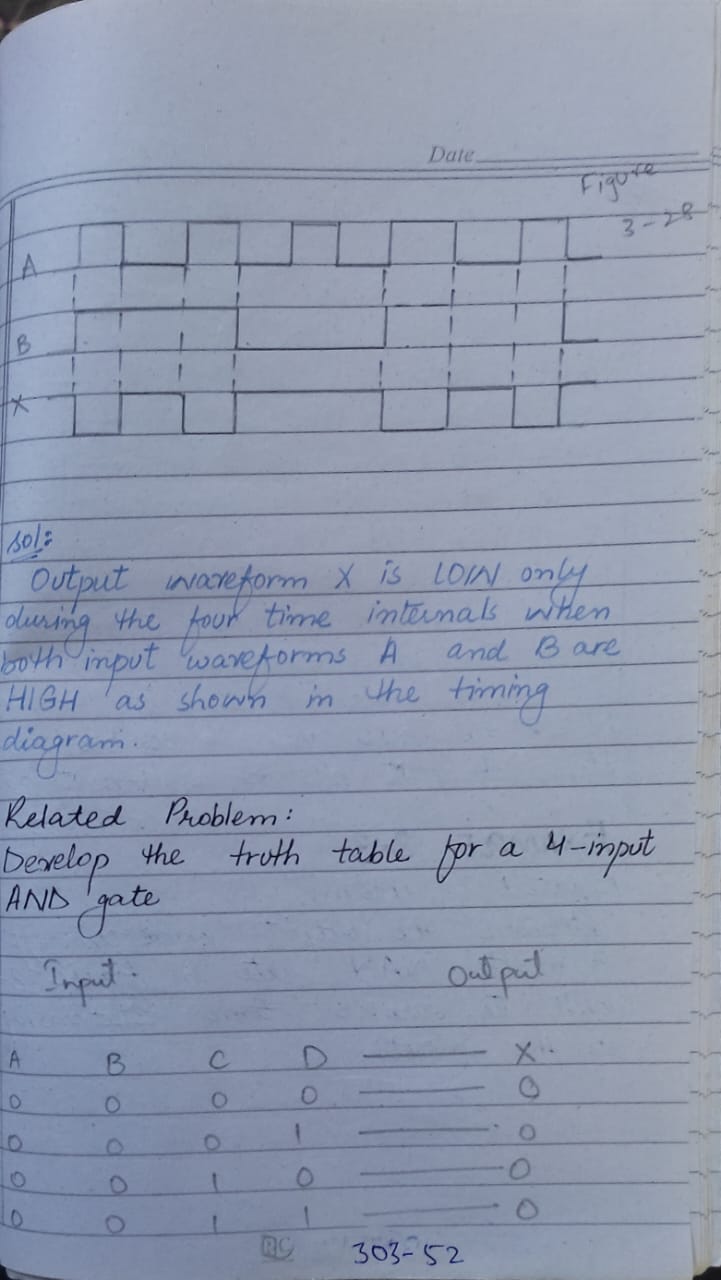 Date
Figure
3-28
A
B
X
sol:
Output waveform X is LOW only
during the four time internals when
both input waveforms A and B are
HIGH as shown in the timing
diagram.
Related Problem:
Develop the truth table for a 4-input
AND gate
Input. Output
A B C D — X
0 0 0 0 — 0
0 0 0 1 — 0
0 0 1 0 — 0
0 0 1 1 — 0
303-52